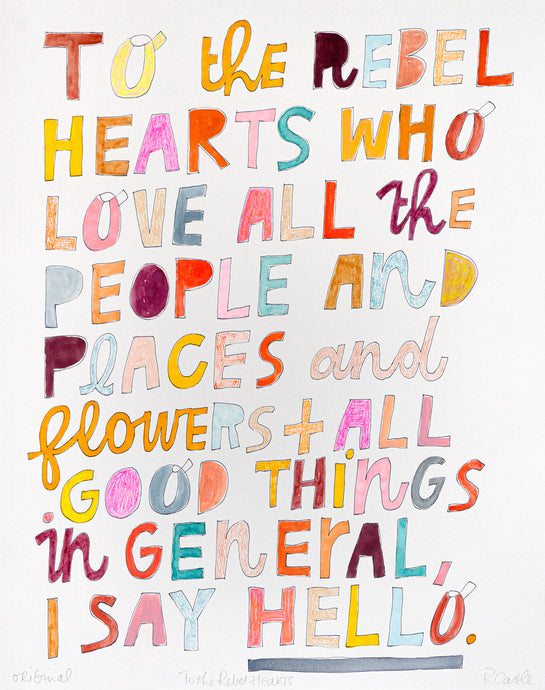 TO the REBEL
HEARTS WHO
LOVE ALL the
PEOPLE AND
PLACES and
flowers + ALL
GOOD THINGS
in GENERAL,
I SAY HELLO.
original To the Rebel Hearts R. Castle